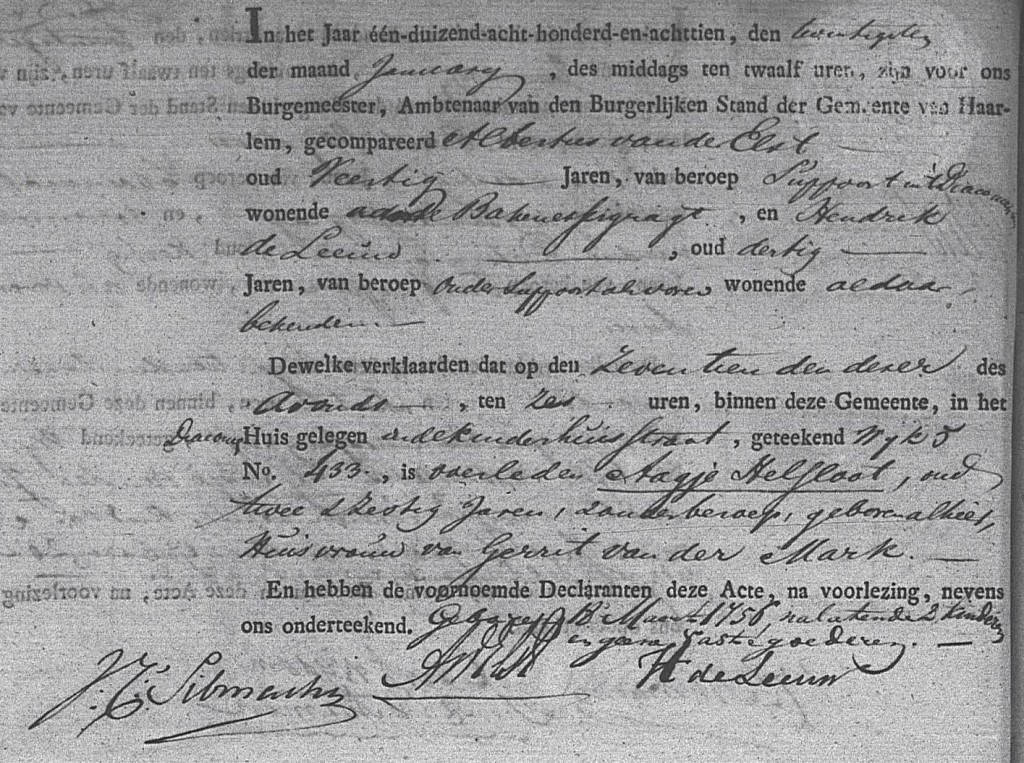 In het Jaar één-duizend-acht-honderd-en-achttien, den twintigsten
der maand January, des middags ten twaalf uren, zijn voor ons
Burgemeester, Ambtenaar van den Burgerlijken Stand der Gemeente van Haar-
lem, gecompareerd Albertus van de Elst
oud Veertig Jaren, van beroep Suppoost in't Diacony
wonende op de Bakenessigragt, en Hendrik
de Leeuw, oud dertig
Jaren, van beroep onder Suppoost als voren wonende aldaar
bekenden
Dewelke verklaarden dat op den Zeventienden dezer des
Avonds, ten zes uren, binnen deze Gemeente, in het
Diacony Huis gelegen in de kinderhuisstraat, geteekend Wyk 5
No. 433, is overleden Aagje Helsloot, oud
twee & Zestig Jaren, zonder beroep, geboren alhier,
Huisvrouw van Gerrit van der Mark.
En hebben de voornoemde Declaranten deze Acte, na voorlezing, nevens
ons onderteekend. Maart 1756, nalatende 2 kinderen
en geene vaste goederen.
H de Leeuw